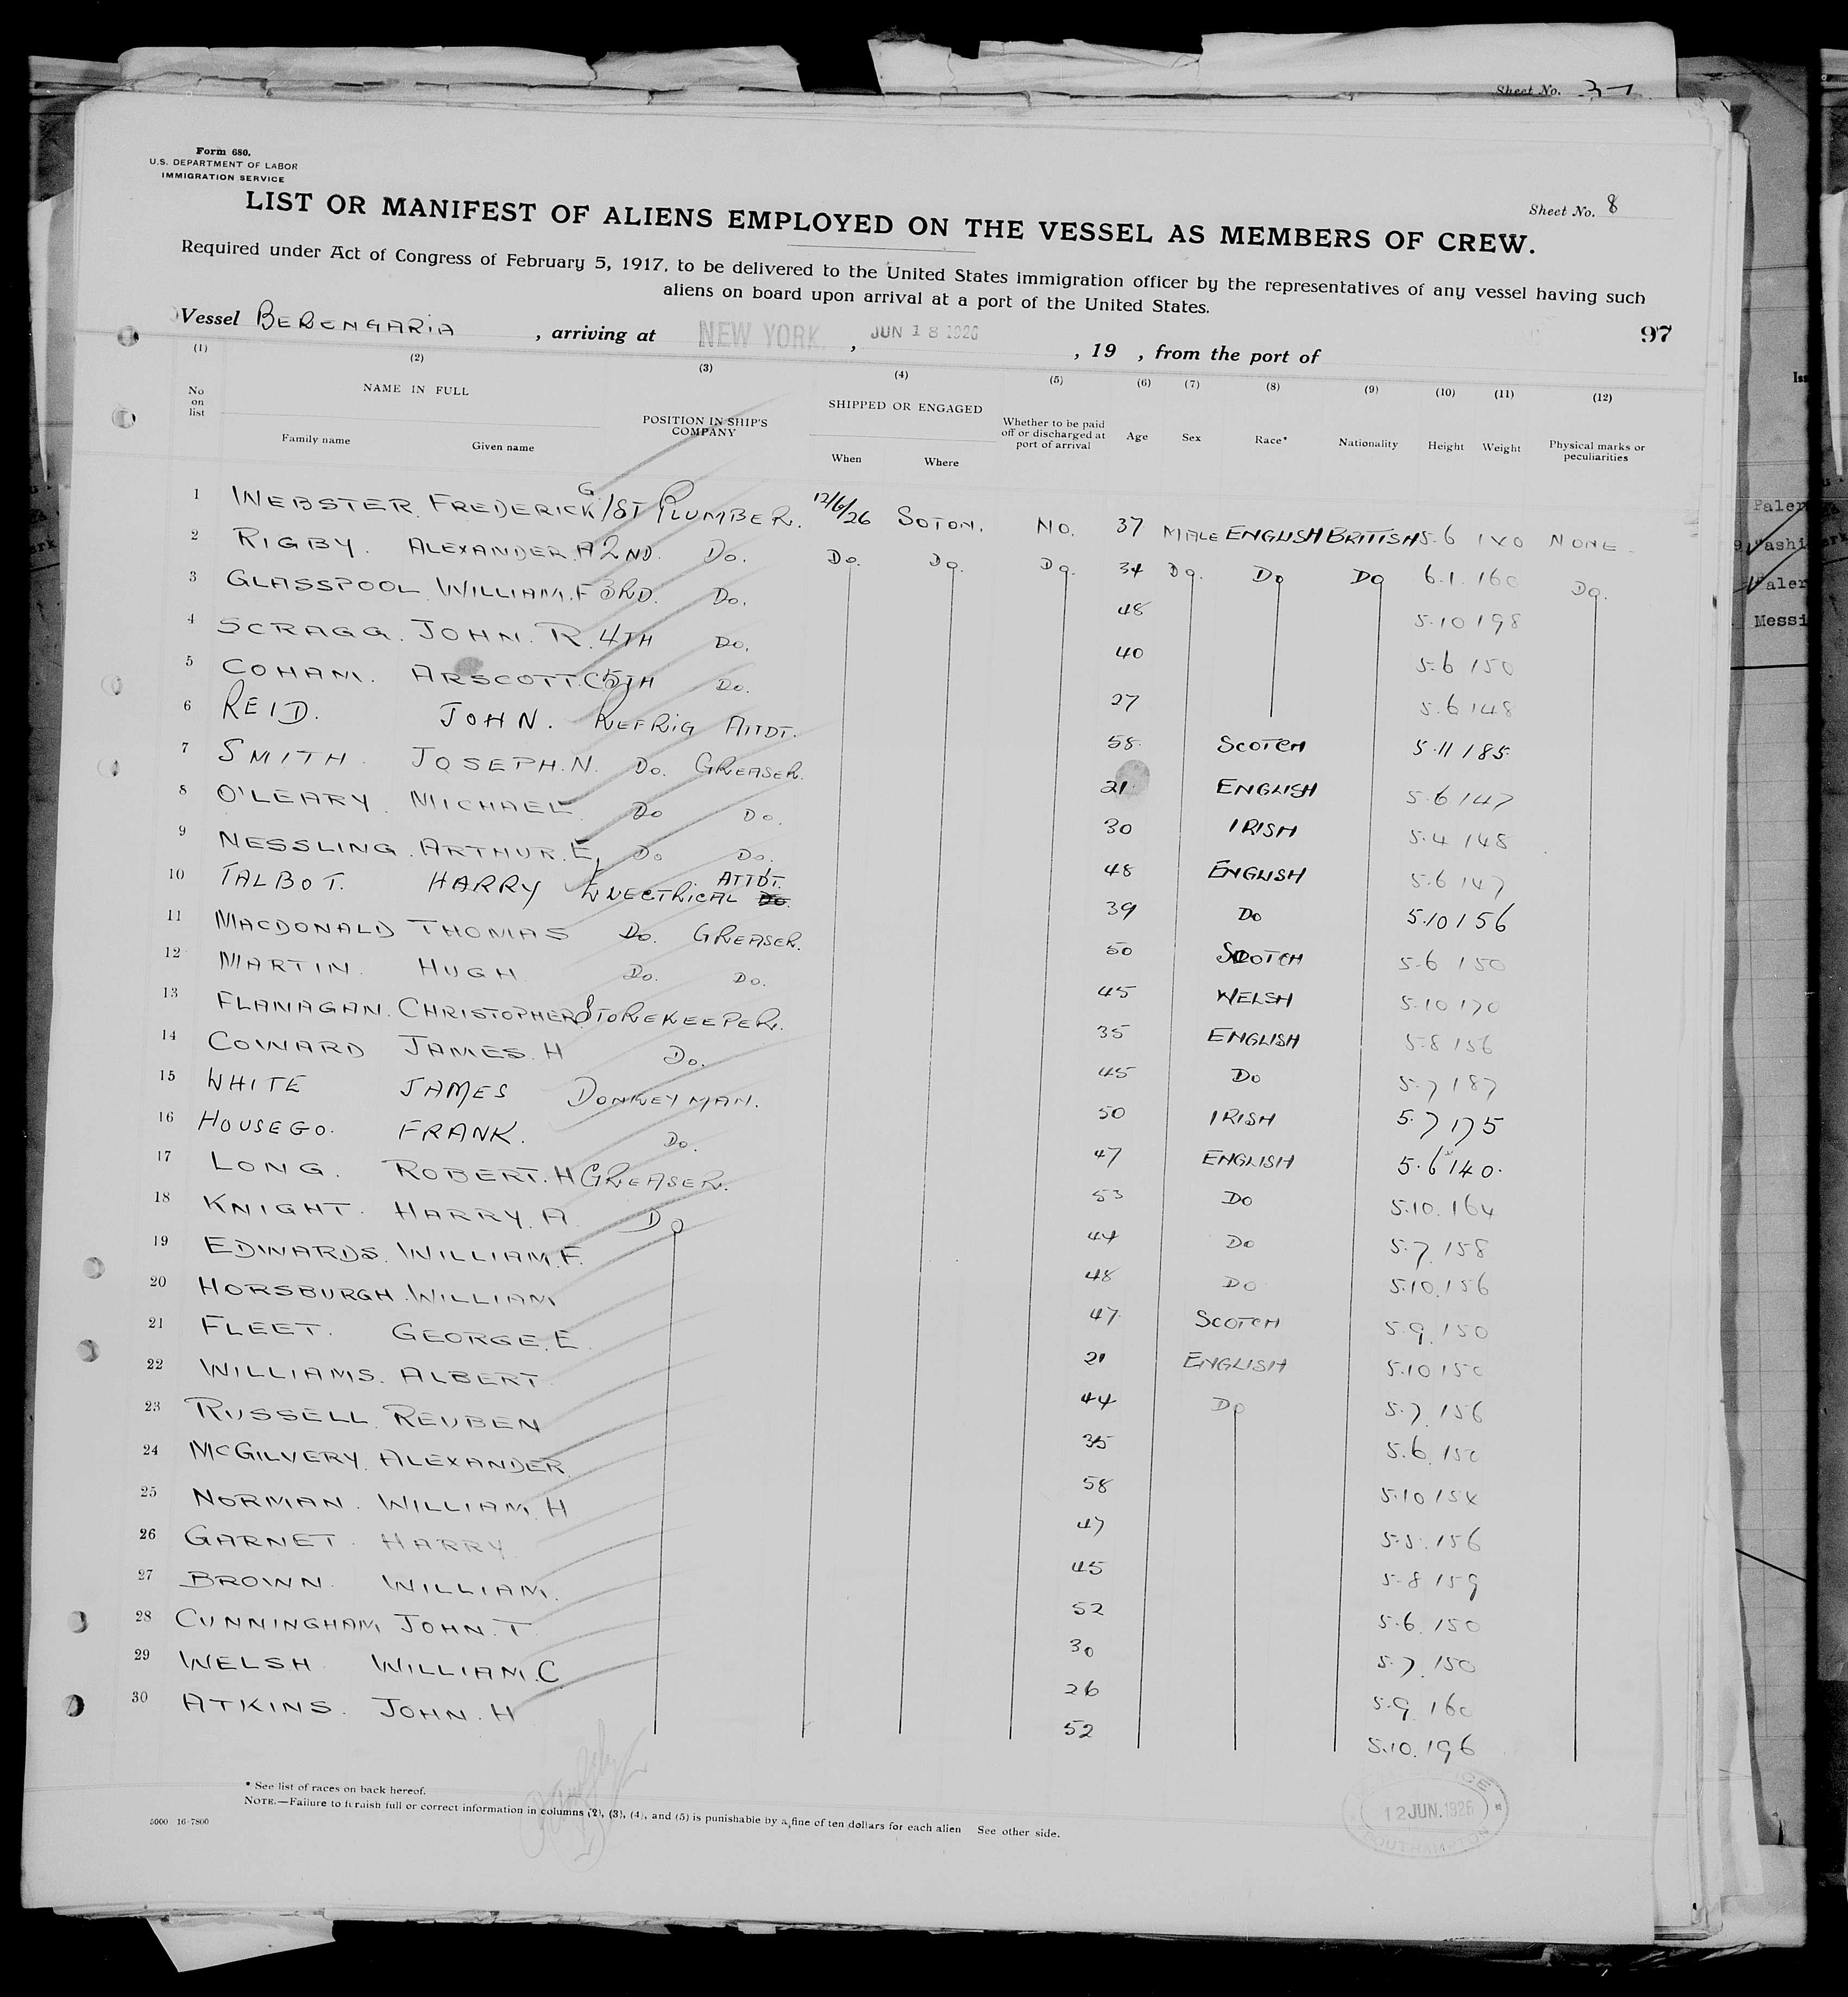 Sheet No. 37
Form 680.
U.S. DEPARTMENT OF LABOR
IMMIGRATION SERVICE
Sheet No. 8
LIST OR MANIFEST OF ALIENS EMPLOYED ON THE VESSEL AS MEMBERS OF CREW.
Required under Act of Congress of February 5, 1917, to be delivered to the United States immigration officer by the representatives of any vessel having such
aliens on board upon arrival at a port of the United States.
Vessel BERENGARIA, arriving at NEW YORK, JUN 18 1926, 19 , from the port of 97
(1) (2) (3) (4) (5) (6) (7) (8) (9) (10) (11) (12)
No on list NAME IN FULL Family name Given name POSITION IN SHIP'S COMPANY SHIPPED OR ENGAGED When Where Whether to be paid off or discharged at port of arrival Age Sex Race* Nationality Height Weight Physical marks or peculiarities
1 WEBSTER. FREDERICK G 1ST PLUMBER. 12/6/26 SOTON. NO. 37 MALE ENGLISH BRITISH 5.6 NONE
2 RIGBY. ALEXANDER. A 2ND. DO. DO. DO. DO. 34 DO. DO DO 6.1. 160 DO.
3 GLASSPOOL. WILLIAM. F 3RD. DO. 48 5.10 198
4 SCRAGG. JOHN. R. 4TH DO. 40 5.6 150
5 COHAM. ARSCOTT. C 5TH DO. 27 5.6 148
6 REID. JOHN. REFRIG ATTDT. 58. SCOTCH 5.11 185
7 SMITH. JOSEPH. N. DO. GREASER. 21. ENGLISH 5.6 147
8 O'LEARY. MICHAEL. DO DO. 30 IRISH 5.4 148
9 NESSLING. ARTHUR. E, DO DO. 48 ENGLISH 5.6 147
10 TALBOT. HARRY ELECTRICAL ATTDT. DO. 39 DO 5.10 156
11 MACDONALD THOMAS DO. GREASER. 50 SCOTCH 5.6 150
12 MARTIN. HUGH DO. DO. 45 WELSH 5.10 170
13 FLANAGAN. CHRISTOPHER STOREKEEPER. 35 ENGLISH 5.8 156
14 COWARD JAMES. H DO. 45 DO 5.7 187
15 WHITE JAMES DONKEYMAN. 50 IRISH 5.7 175
16 HOUSEGO. FRANK. DO. 47 ENGLISH 5.6 140.
17 LONG. ROBERT. H GREASER. 53 DO 5.10. 164
18 KNIGHT. HARRY. A. DO 44 DO 5.7. 158
19 EDWARDS. WILLIAM. F. 48 DO 5.10. 156
20 HORSBURGH. WILLIAM 47. SCOTCH 5.9. 150
21 FLEET. GEORGE. E. 21 ENGLISH 5.10 150
22 WILLIAMS. ALBERT. 44 DO 5.7. 156
23 RUSSELL. REUBEN 35 5.6. 150
24 MCGILVERY. ALEXANDER. 58 5.10 154
25 NORMAN. WILLIAM. H 47 5.5. 156
26 GARNET. HARRY 45 5.8 159
27 BROWN. WILLIAM. 52 5.6. 150
28 CUNNINGHAM JOHN. T 30 5.7. 150
29 WELSH WILLIAM. C 26 5.9 160
30 ATKINS. JOHN. H 52 5.10. 196
* See list of races on back hereof.
NOTE.—Failure to furnish full or correct information in columns (2), (3), (4), and (5) is punishable by a fine of ten dollars for each alien See other side.
5000 16-7800
12 JUN. 1926
SOUTHAMPTON
Paler
Washi
Paler
Messi